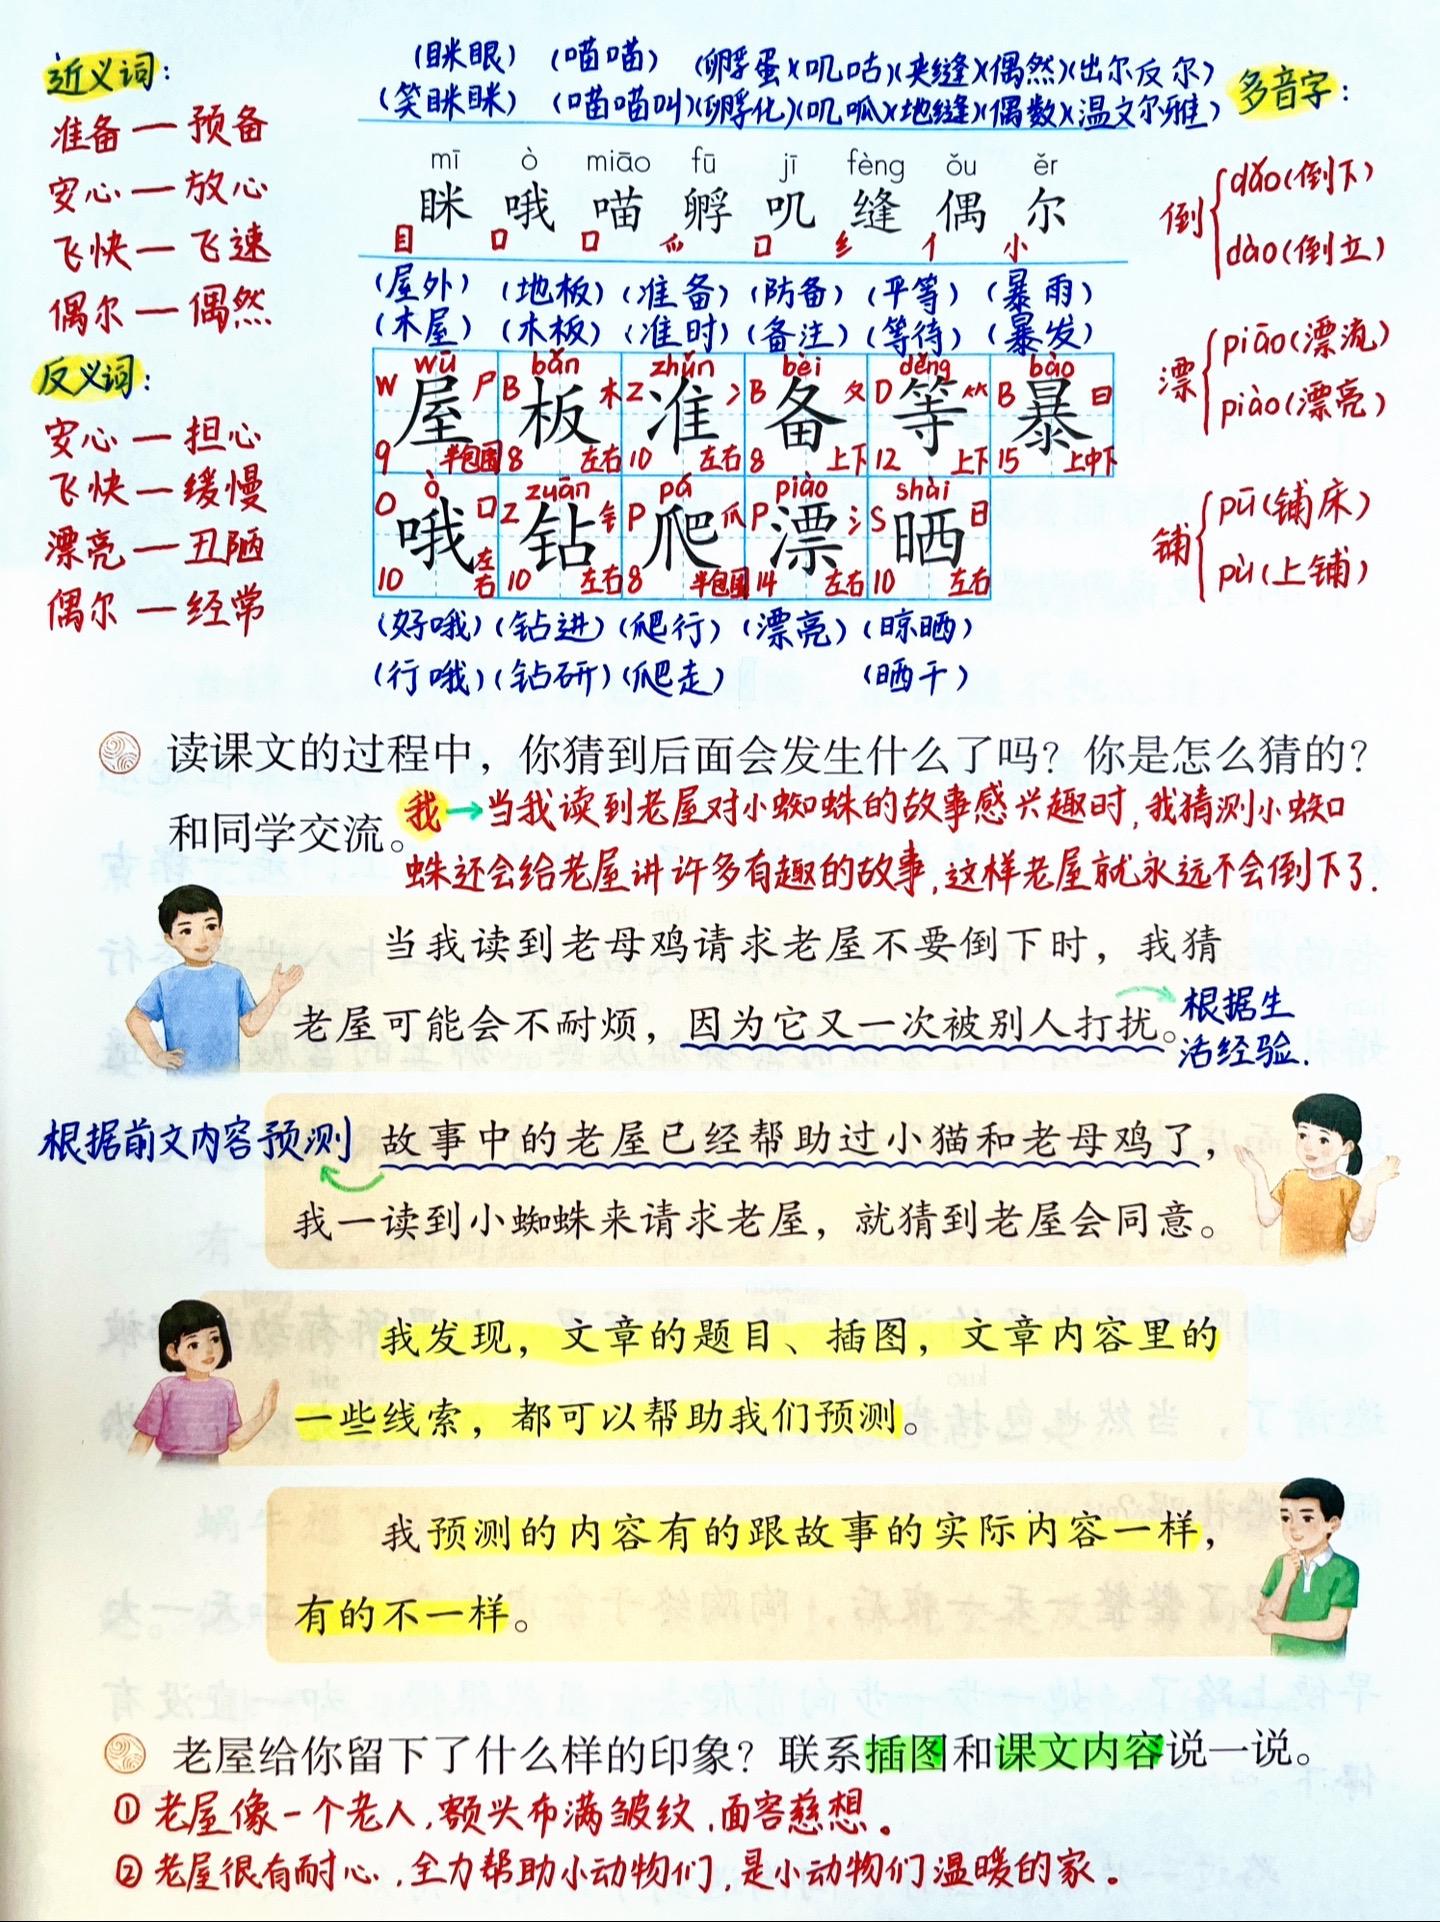 近义词：
准备—预备
安心—放心
飞快—飞速
偶尔—偶然
反义词：
安心—担心
飞快—缓慢
漂亮—丑陋
偶尔—经常
(眯眼) (喵喵) (孵蛋)(叽咕)(夹缝)(偶然)(出尔反尔)
(笑眯眯) (喵喵叫)(孵化)(叽呱)(地缝)(偶数)(温文尔雅)
mī ò miāo fū jī fèng ǒu ěr
眯 哦 喵 孵 叽 缝 偶 尔
目 口 口 爪 口 纟 亻 小
(屋外) (地板) (准备) (防备) (平等) (暴雨)
(木屋) (木板) (准时) (备注) (等待) (暴发)
wū bǎn zhǔn bèi děng bào
W 屋 尸 B 板 木 Z 准 冫 B 备 夂 D 等 ⺮ B 暴 日
9 半包围 8 左右 10 左右 8 上下 12 上下 15 上中下
ò zuān pá piào shài
O 哦 口 Z 钻 钅 P 爬 爪 P 漂 氵 S 晒 日
10 左右 10 左右 8 半包围 14 左右 10 左右
(好哦) (钻进) (爬行) (漂亮) (晾晒)
(行哦) (钻研) (爬走) (晒干)
多音字：
倒 dǎo(倒下)
dào(倒立)
漂 piāo(漂流)
piào(漂亮)
铺 pū(铺床)
pù(上铺)
读课文的过程中，你猜到后面会发生什么了吗？你是怎么猜的？
和同学交流。
我→当我读到老屋对小蜘蛛的故事感兴趣时,我猜测小蜘
蛛还会给老屋讲许多有趣的故事,这样老屋就永远不会倒下了.
当我读到老母鸡请求老屋不要倒下时，我猜
老屋可能会不耐烦，因为它又一次被别人打扰。
根据生
活经验.
根据前文内容预测
故事中的老屋已经帮助过小猫和老母鸡了，
我一读到小蜘蛛来请求老屋，就猜到老屋会同意。
我发现，文章的题目、插图，文章内容里的
一些线索，都可以帮助我们预测。
我预测的内容有的跟故事的实际内容一样，
有的不一样。
老屋给你留下了什么样的印象？联系插图和课文内容说一说。
①老屋像一个老人,额头布满皱纹,面容慈想。
②老屋很有耐心,全力帮助小动物们,是小动物们温暖的家。